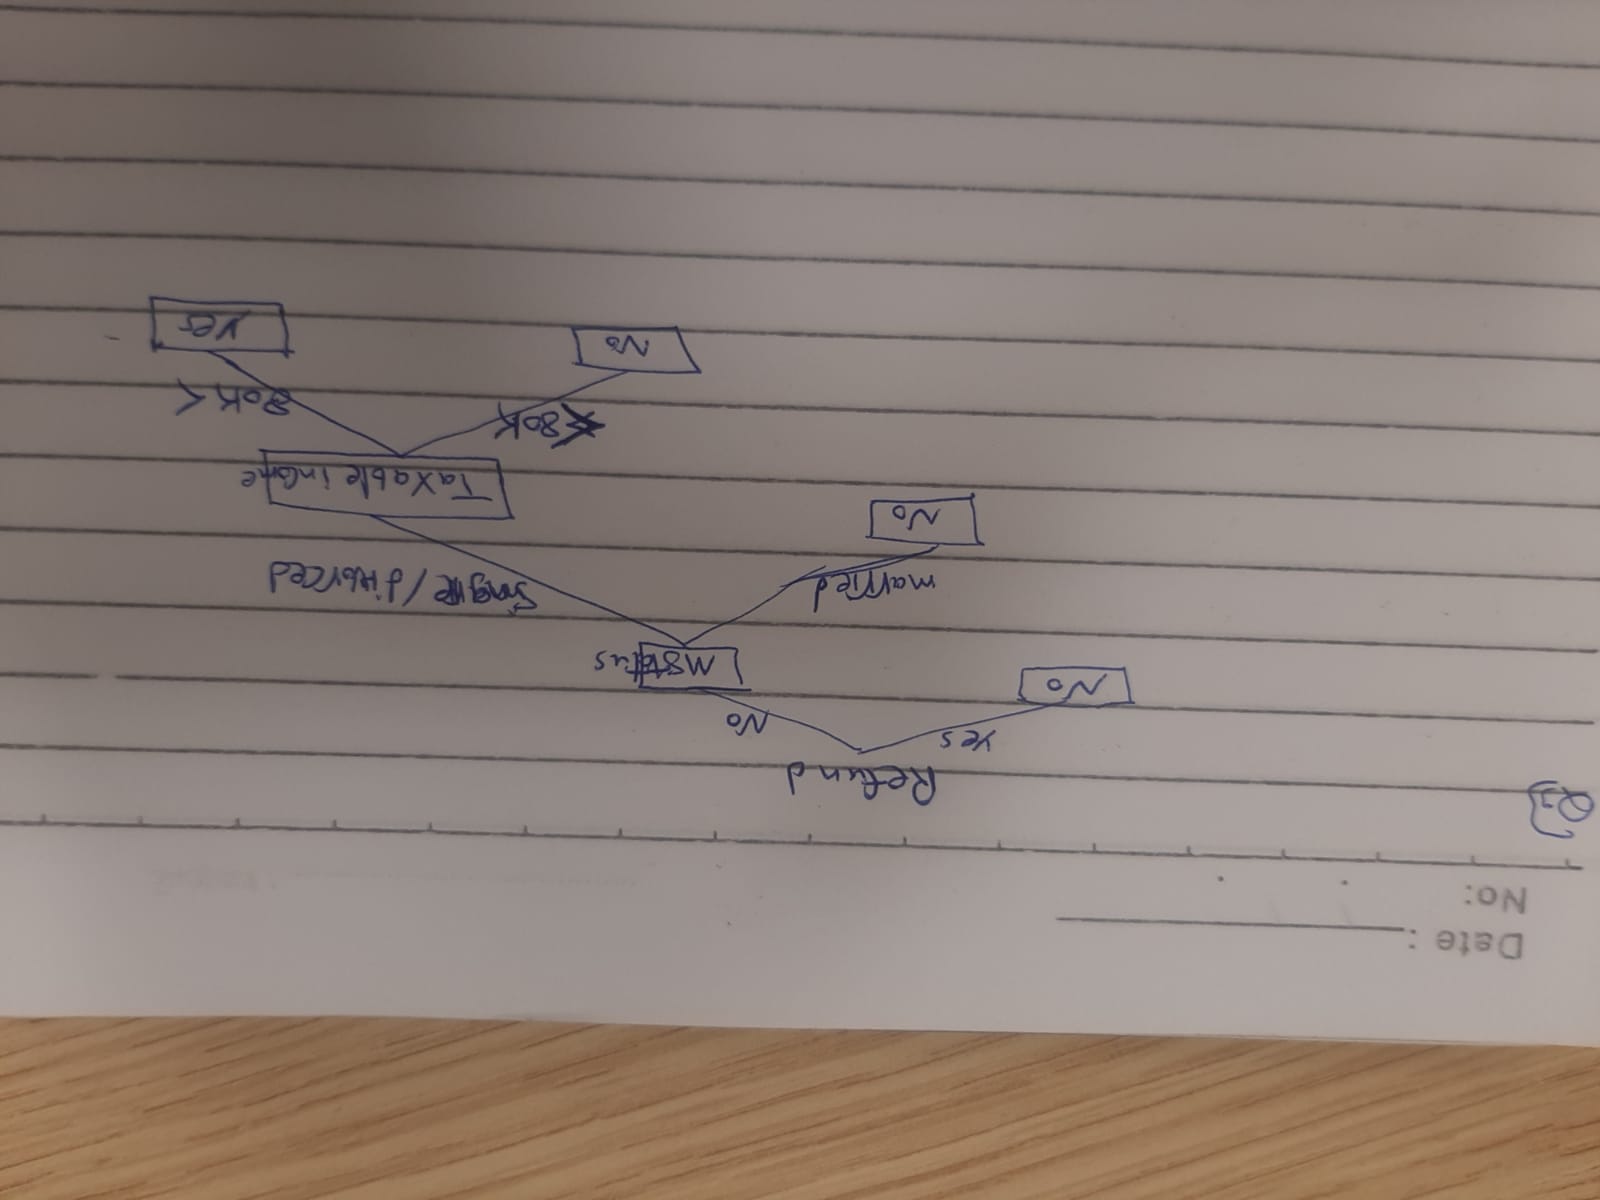 Date :
No:
Q3]
Refund
Yes No
No MStatus
married Single/divorced
No Taxable income
80K <
No Yes